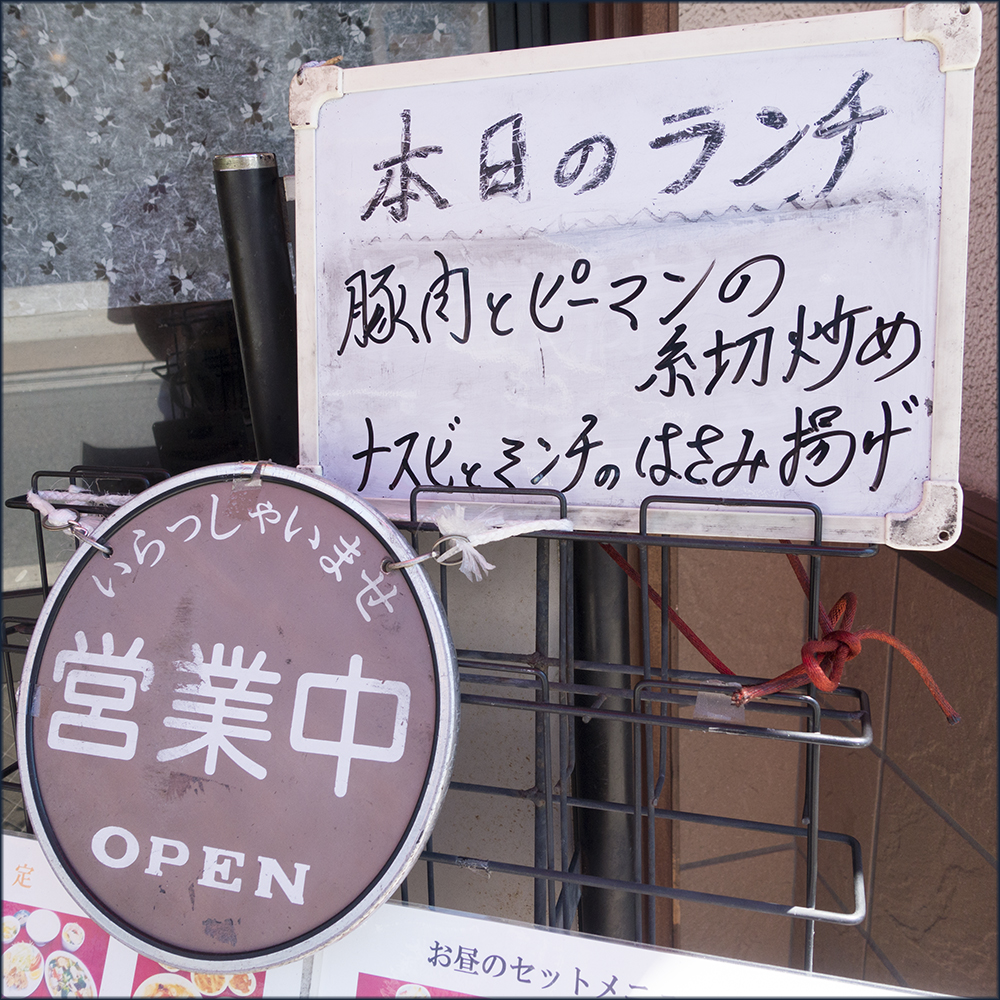 本日のランチ
豚肉とピーマンの
糸切炒め
ナスビとミンチのはさみ揚げ
いらっしゃいませ
営業中
OPEN
定
お昼のセットメニ